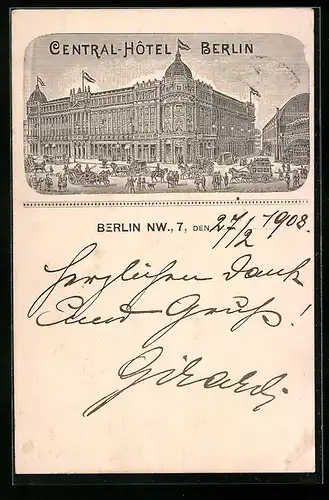 CENTRAL-HÔTEL BERLIN
BERLIN NW., 7, DEN 27/2 1908.
Herzlichen Dank
und Gruß!
Girardi